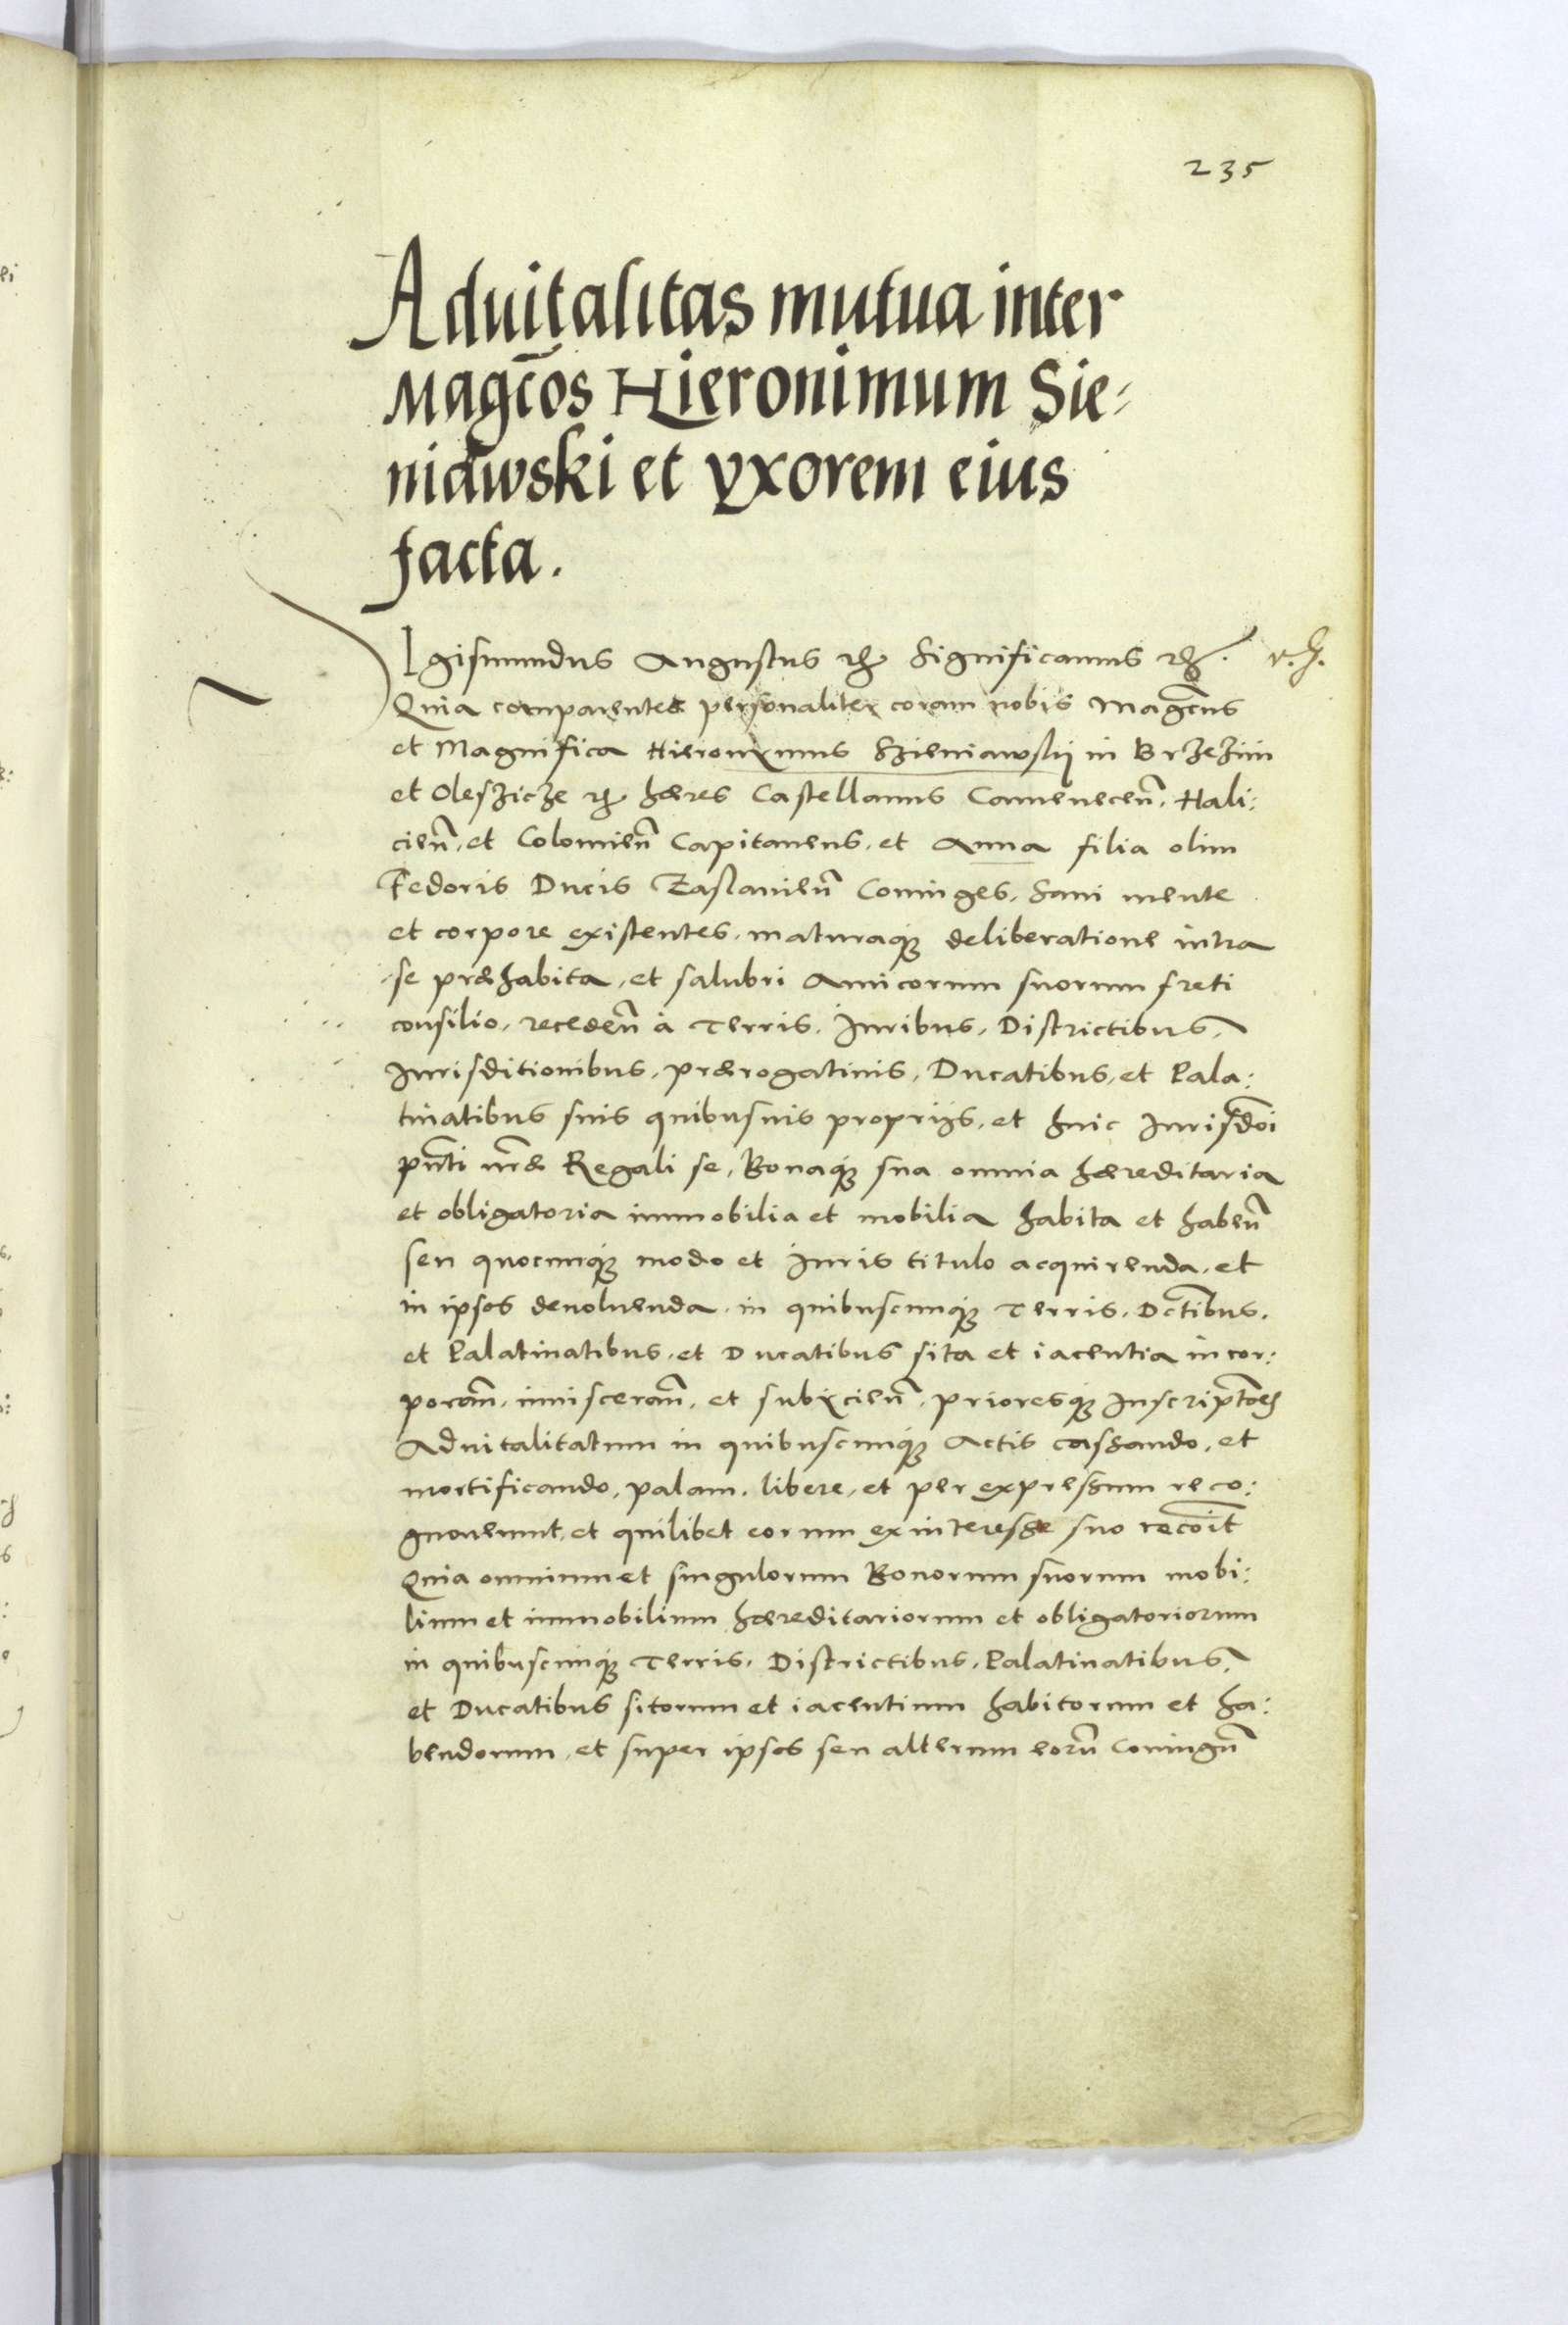 235
Advitalitas mutua inter
Magcos Hieronimum Sie-
niawski et vxorem eius
facta.
Igismundus Augustus etc. Significamus etc.
Quia comparentes personaliter coram nobis Magcus
et Magnifica Hieronymus Szieniawsky in Brzezini
et Olesziche etc. haeres Castellanus Camenecen. Hali:
cien. et Colomien Capitaneus, et Anna filia olim
Fedoris Ducis Zaslavien Coniuges, sani mente
et corpore existentes, maturaque deliberatione intra
se praehabita, et salubri Amicorum suorum freti
consilio, receden à Terris, Iuribus, Districtibus,
Iurisditionibus, praerogativis, Ducatibus, et Pala:
tinatibus suis quibusuis proprijs, et huic Iurisdoni
pnti nrae Regali se, Bonaque sua omnia haereditaria
et obligatoria immobilia et mobilia habita et haben
seu quocunque modo et Iuris titulo acquirenda, et
in ipsos devoluenda, in quibuscunque Terris, Dctibus,
et Palatinatibus, et Ducatibus sita et iacentia incor:
poran, inuisceran, et subycien, prioresque Inscriptoes
Aduitalitatum in quibuscunque Actis cassando, et
mortificando, palam, libere, et per expressum reco:
gnouerunt, et quilibet eorum ex interesse suo recoit
Quia omnium et singulorum Bonorum suorum mobi:
lium et immobilium haereditariorum et obligatoriorum
in quibuscunque Terris, Districtibus, Palatinatibus,
et Ducatibus sitorum et iacentium habitorum et ha:
bendorum, et super ipsos seu alterum eorum Coniugum